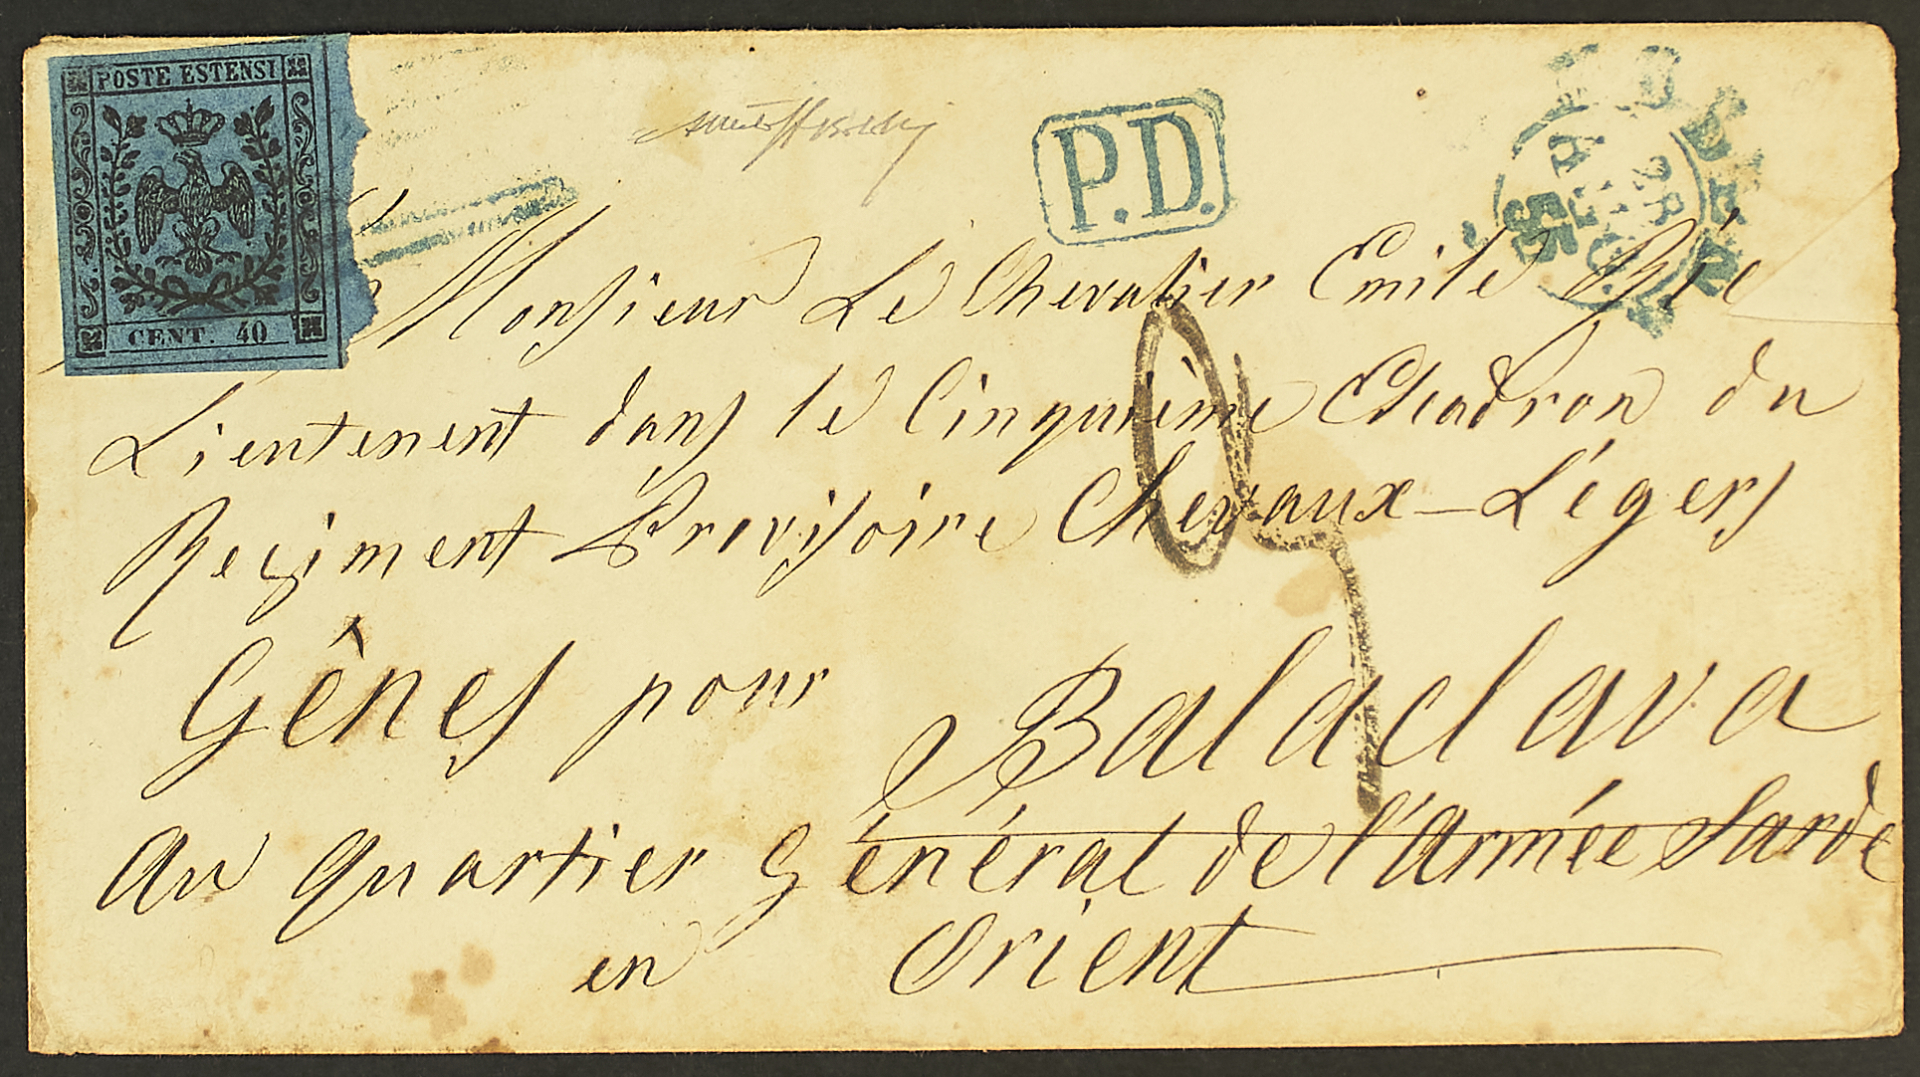 POSTE ESTENSI
CENT. 40
P.D.
55
Monsieur Le Chevalier Emile
Lieutenent dans le Cinquième Escadron du
Regiment Provisoire Chevaux-Légers
Gênes pour Balaclava
Au Quartier Général de l'Armée Sarde
en Orient